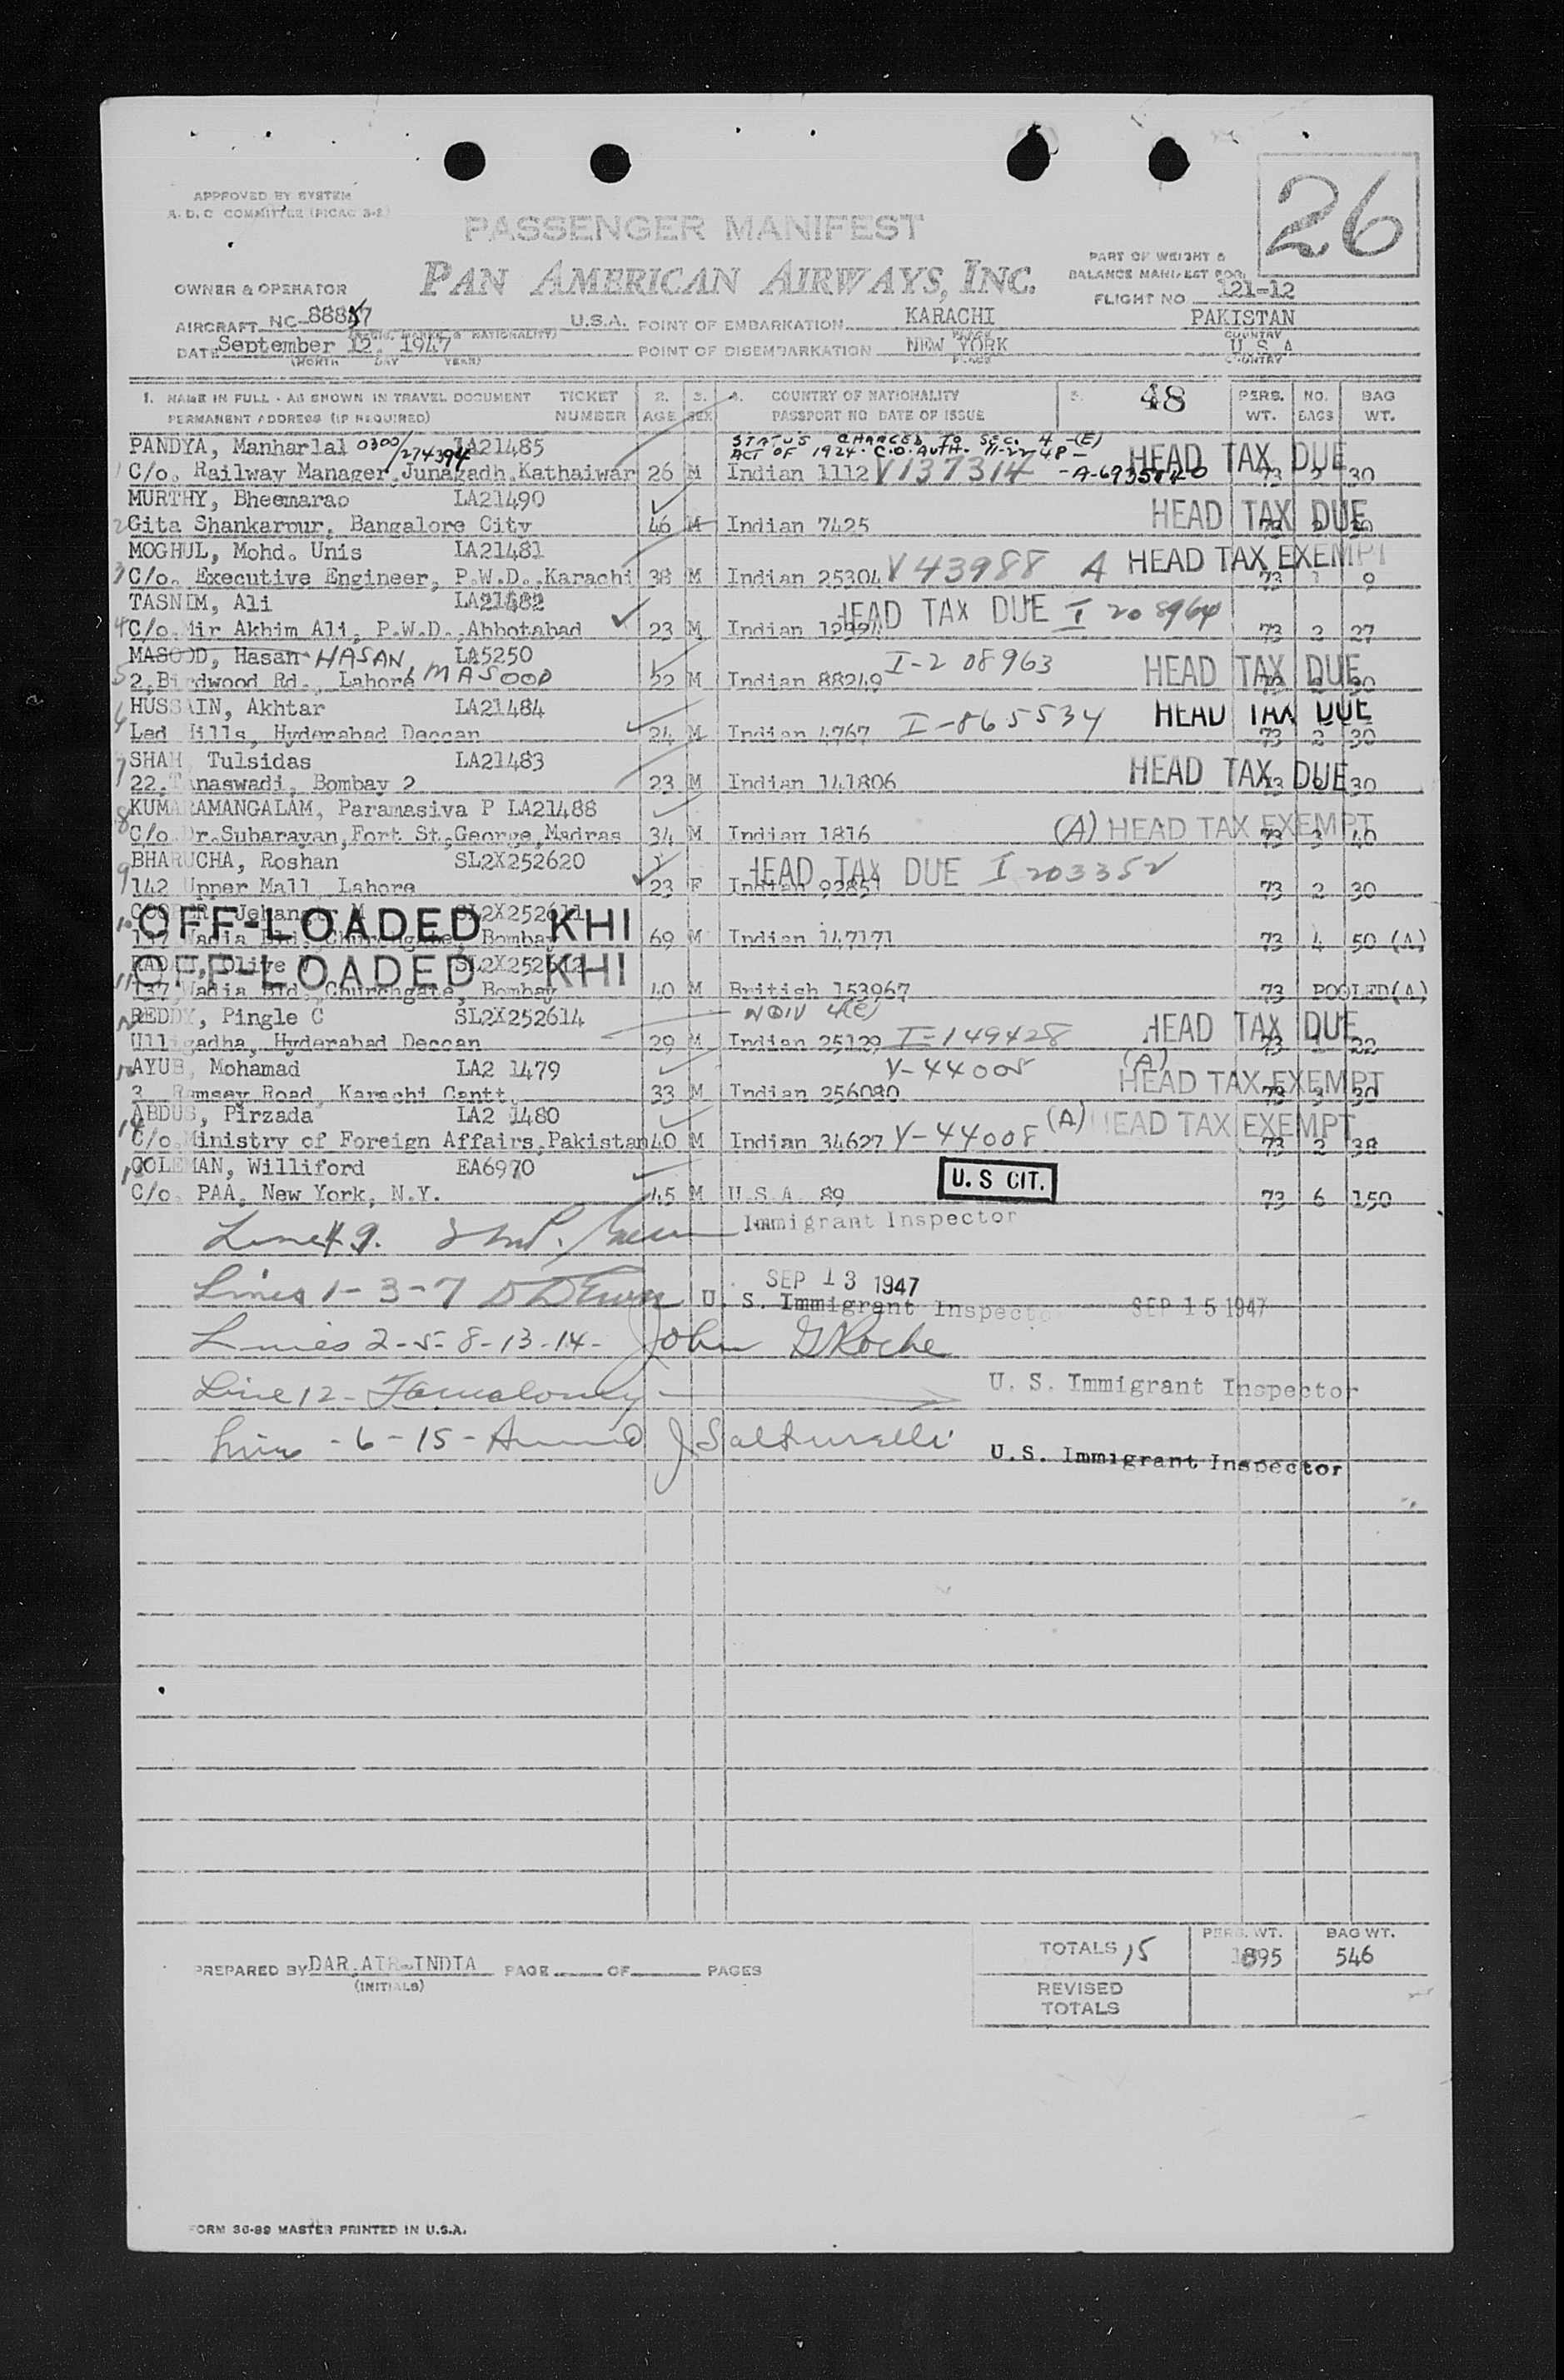 APPROVED BY SYSTEM
A. D. C COMMITTEE (PICAO 3-2)
26
PASSENGER MANIFEST
PAN AMERICAN AIRWAYS, INC.
PART OF WEIGHT &
BALANCE MANIFEST FOR
OWNER & OPERATOR
FLIGHT NO 121-12
AIRCRAFT NC-88857 U.S.A. POINT OF EMBARKATION KARACHI PAKISTAN
PLACE COUNTRY
DATE September 12, 1947 POINT OF DISEMBARKATION NEW YORK U S A
(MONTH DAY YEAR) PLACE COUNTRY
1. NAME IN FULL - AS SHOWN IN TRAVEL DOCUMENT TICKET 2. 3. 4. COUNTRY OF NATIONALITY 5. 48 PERS. NO. BAG
PERMANENT ADDRESS (IF REQUIRED) NUMBER AGE SEX PASSPORT NO DATE OF ISSUE WT. BAGS WT.
PANDYA, Manharlal 0300/274394 LA21485 STATUS CHANGED TO SEC. 4-(E)
ACT OF 1924. C.O. AUTH. 11-22-48- HEAD TAX DUE
1 C/o. Railway Manager, Junagadh, Kathaiwar 26 M Indian 1112 V137314 73 2 30
MURTHY, Bheemarao LA21490 HEAD TAX DUE
2 Gita Shankarpur, Bangalore City 46 M Indian 7425 73
MOGHUL, Mohd. Unis LA21481 HEAD TAX EXEMPT
3 C/o. Executive Engineer, P.W.D., Karachi 38 M Indian 25304 V43988 A 73 1 9
TASNIM, Ali LA21482 HEAD TAX DUE I 208964
4 C/o. Mir Akhim Ali, P.W.D., Abbotabad 23 M Indian 73 2 27
MASOOD, Hasan HASAN, LA5250 I-208963 HEAD TAX DUE
5 2, Birdwood Rd., Lahore MASOOD 22 M Indian 88249 73
HUSSAIN, Akhtar LA21484 HEAD TAX DUE
6 Lad Hills, Hyderabad Deccan 24 M Indian 4767 I-865534 73 2 30
SHAH Tulsidas LA21483 HEAD TAX DUE
7 22, Tanaswadi, Bombay 2 23 M Indian 141806 73 30
KUMARAMANGALAM, Paramasiva P LA21488
8 C/o. Dr. Subarayan, Fort St. George, Madras 34 M Indian 1816 (A) HEAD TAX EXEMPT 73 3 40
BHARUCHA, Roshan SL2X252620 HEAD TAX DUE I 203352
9 142 Upper Mall Lahore 23 F Indian 73 2 30
10 COOPER, Jehangir M SL2X252611 OFF-LOADED KHI
137 Wadia Bld. Churchgate, Bombay 69 M Indian 147171 73 4 50 (A)
11 Olive OFF-LOADED KHI
137, Wadia Bld., Churchgate, Bombay 40 M British 153967 73 POOLED (A)
REDDY, Pingle C SL2X252614 NQIV 4(E) HEAD TAX DUE
12 Hyderabad Deccan 29 M Indian 25129 I-149428 73 22
13 AYUB, Mohamad LA2 1479 V-44005 (A) HEAD TAX EXEMPT
3 Ramsey Road, Karachi Cantt. 33 M Indian 256080 73 3 30
ABDUS, Pirzada LA2 1480 (A) HEAD TAX EXEMPT
14 C/o. Ministry of Foreign Affairs, Pakistan 40 M Indian 34627 V-44008 73 2 38
COLEMAN, Williford EA6970 U.S CIT.
C/o. PAA, New York, N.Y. 45 M U S A 89 73 6 150
Immigrant Inspector
SEP 13 1947
Lines 1-3-7 U. S. Immigrant Inspector SEP 15 1947
Lines 2-5-8-13-14- John G Roche
Line 12- U. S. Immigrant Inspector
-6-15- U.S. Immigrant Inspector
TOTALS 15 PERS. WT. 1895 BAG WT. 546
PREPARED BY DAR, AIR-INDIA PAGE OF PAGES
(INITIALS)
REVISED
TOTALS
FORM 36-89 MASTER PRINTED IN U.S.A.